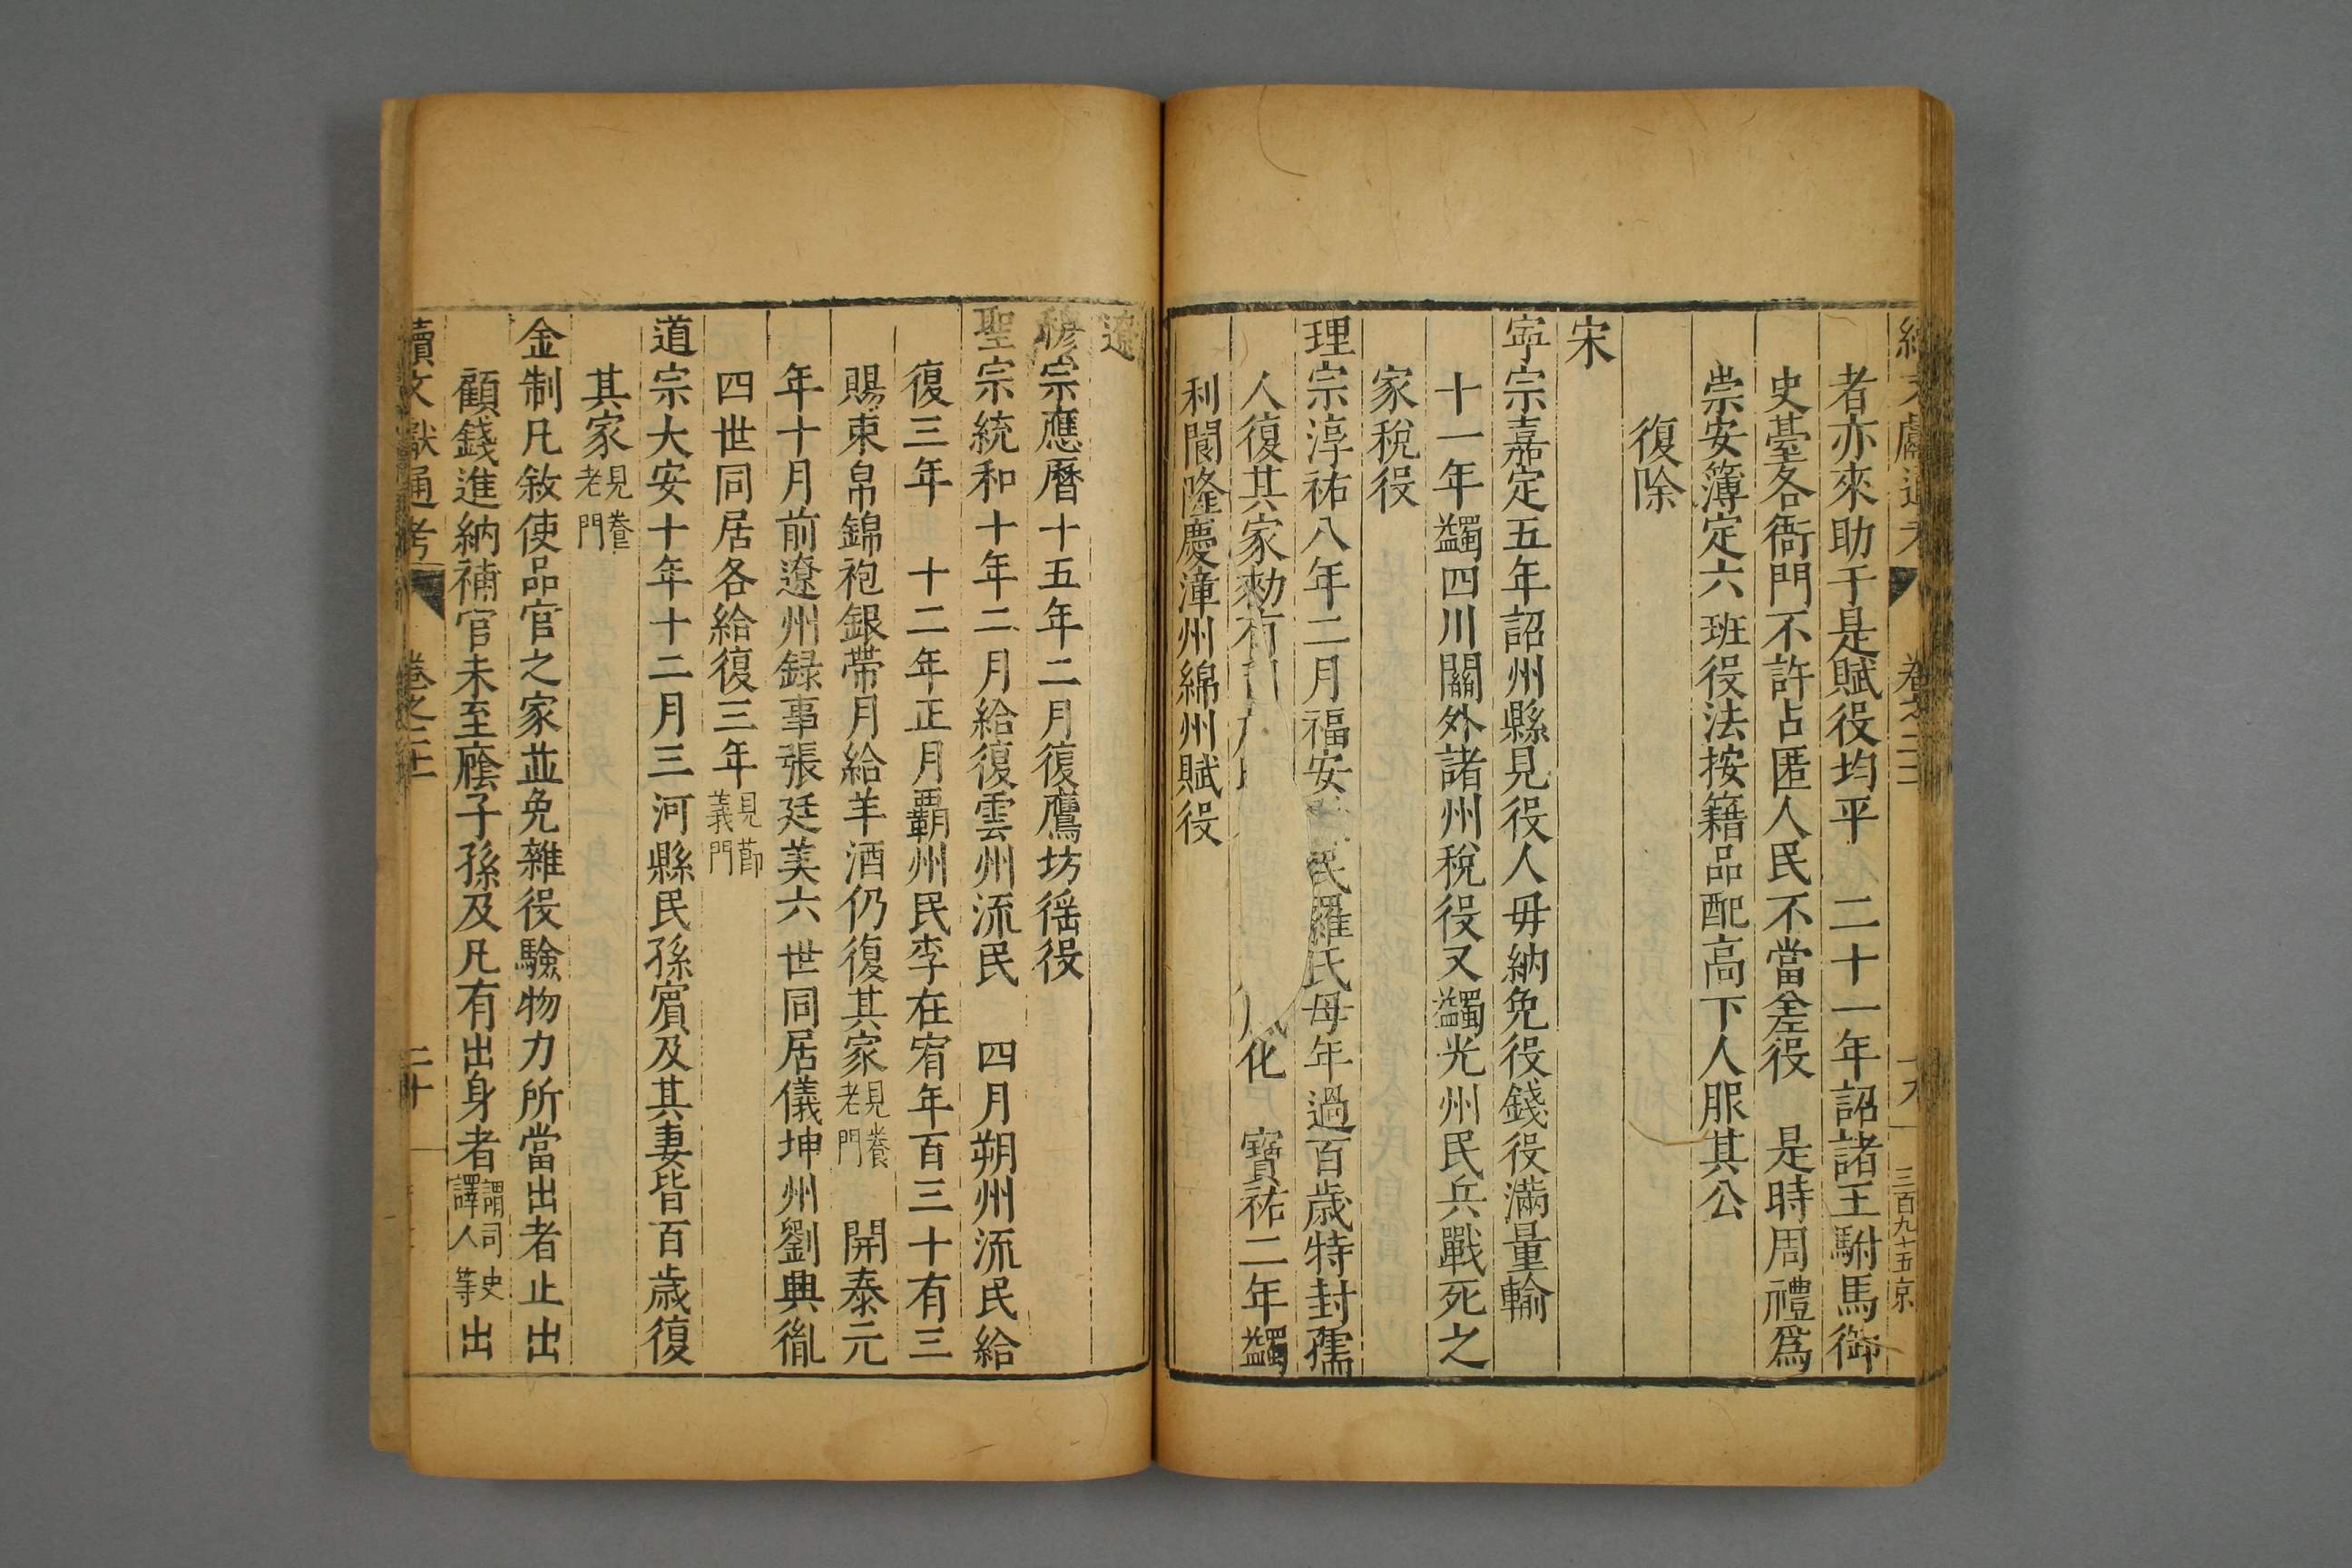 者亦來助于是賦役均平 二十一年詔諸王駙馬御
史臺各衙門不許占匿人民不當差役 是時周禮爲
崇安簿定六班役法按籍品配高下人服其公
復除
宋
寧宗嘉定五年詔州縣見役人毋納免役錢役滿量輸
十一年蠲四川關外諸州稅役又蠲光州民兵戰死之
家稅役
理宗淳祐八年二月福安民羅氏母年過百歲特封孺
人復其家勑有化 寶祐二年蠲
利閬隆慶潼州綿州賦役
三百九十五 京
遼
穆宗應曆十五年二月復鷹坊徭役
聖宗統和十年二月給復雲州流民 四月朔州流民給
復三年 十二年正月霸州民李在宥年百三十有三
賜束帛錦袍銀帶月給羊酒仍復其家見養老門 開泰元
年十月前遼州録事張廷美六世同居儀坤州劉興胤
四世同居各給復三年見節義門
道宗大安十年十二月三河縣民孫賓及其妻皆百歲復
其家見養老門
金制凡敘使品官之家並免雜役驗物力所當出者止出
顧錢進納補官未至廕子孫及凡有出身者謂司史譯人等出
續文獻通考 卷之二十 二十